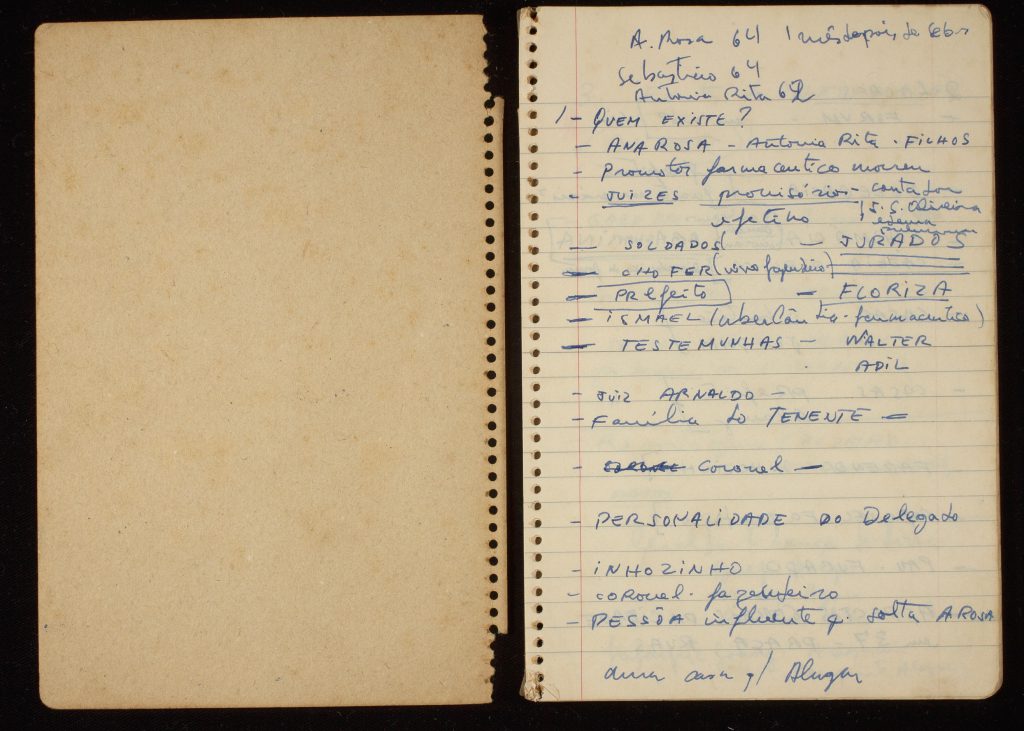 A. Rosa 64 1 mês depois de Seb
Sebastião 64
Antonia Rita 62
1 - QUEM EXISTE?
- ANA ROSA - Antonia Rita - FILHOS
- Promotor farmaceutico morreu
- JUIZES provisórios - contador
efetivo J. G. Oliveira
edema pulmonar
- SOLDADOS - JURADOS
- CHOFER (vivo fazendeiro)
- PREfeito - FLORIZA
- iSMAEL (Uberlândia - farmaceutico)
- TESTEMUNHAS - WALTER
ADIL
- JUIZ ARNALDO -
- Família do TENENTE -
- Coronel -
- PERSONALIDADE DO Delegado
- iNHOZINHO
- CORONEL. fazendeiro
- PESSÔA influente q. solta A ROSA
uma casa p/ Alugar